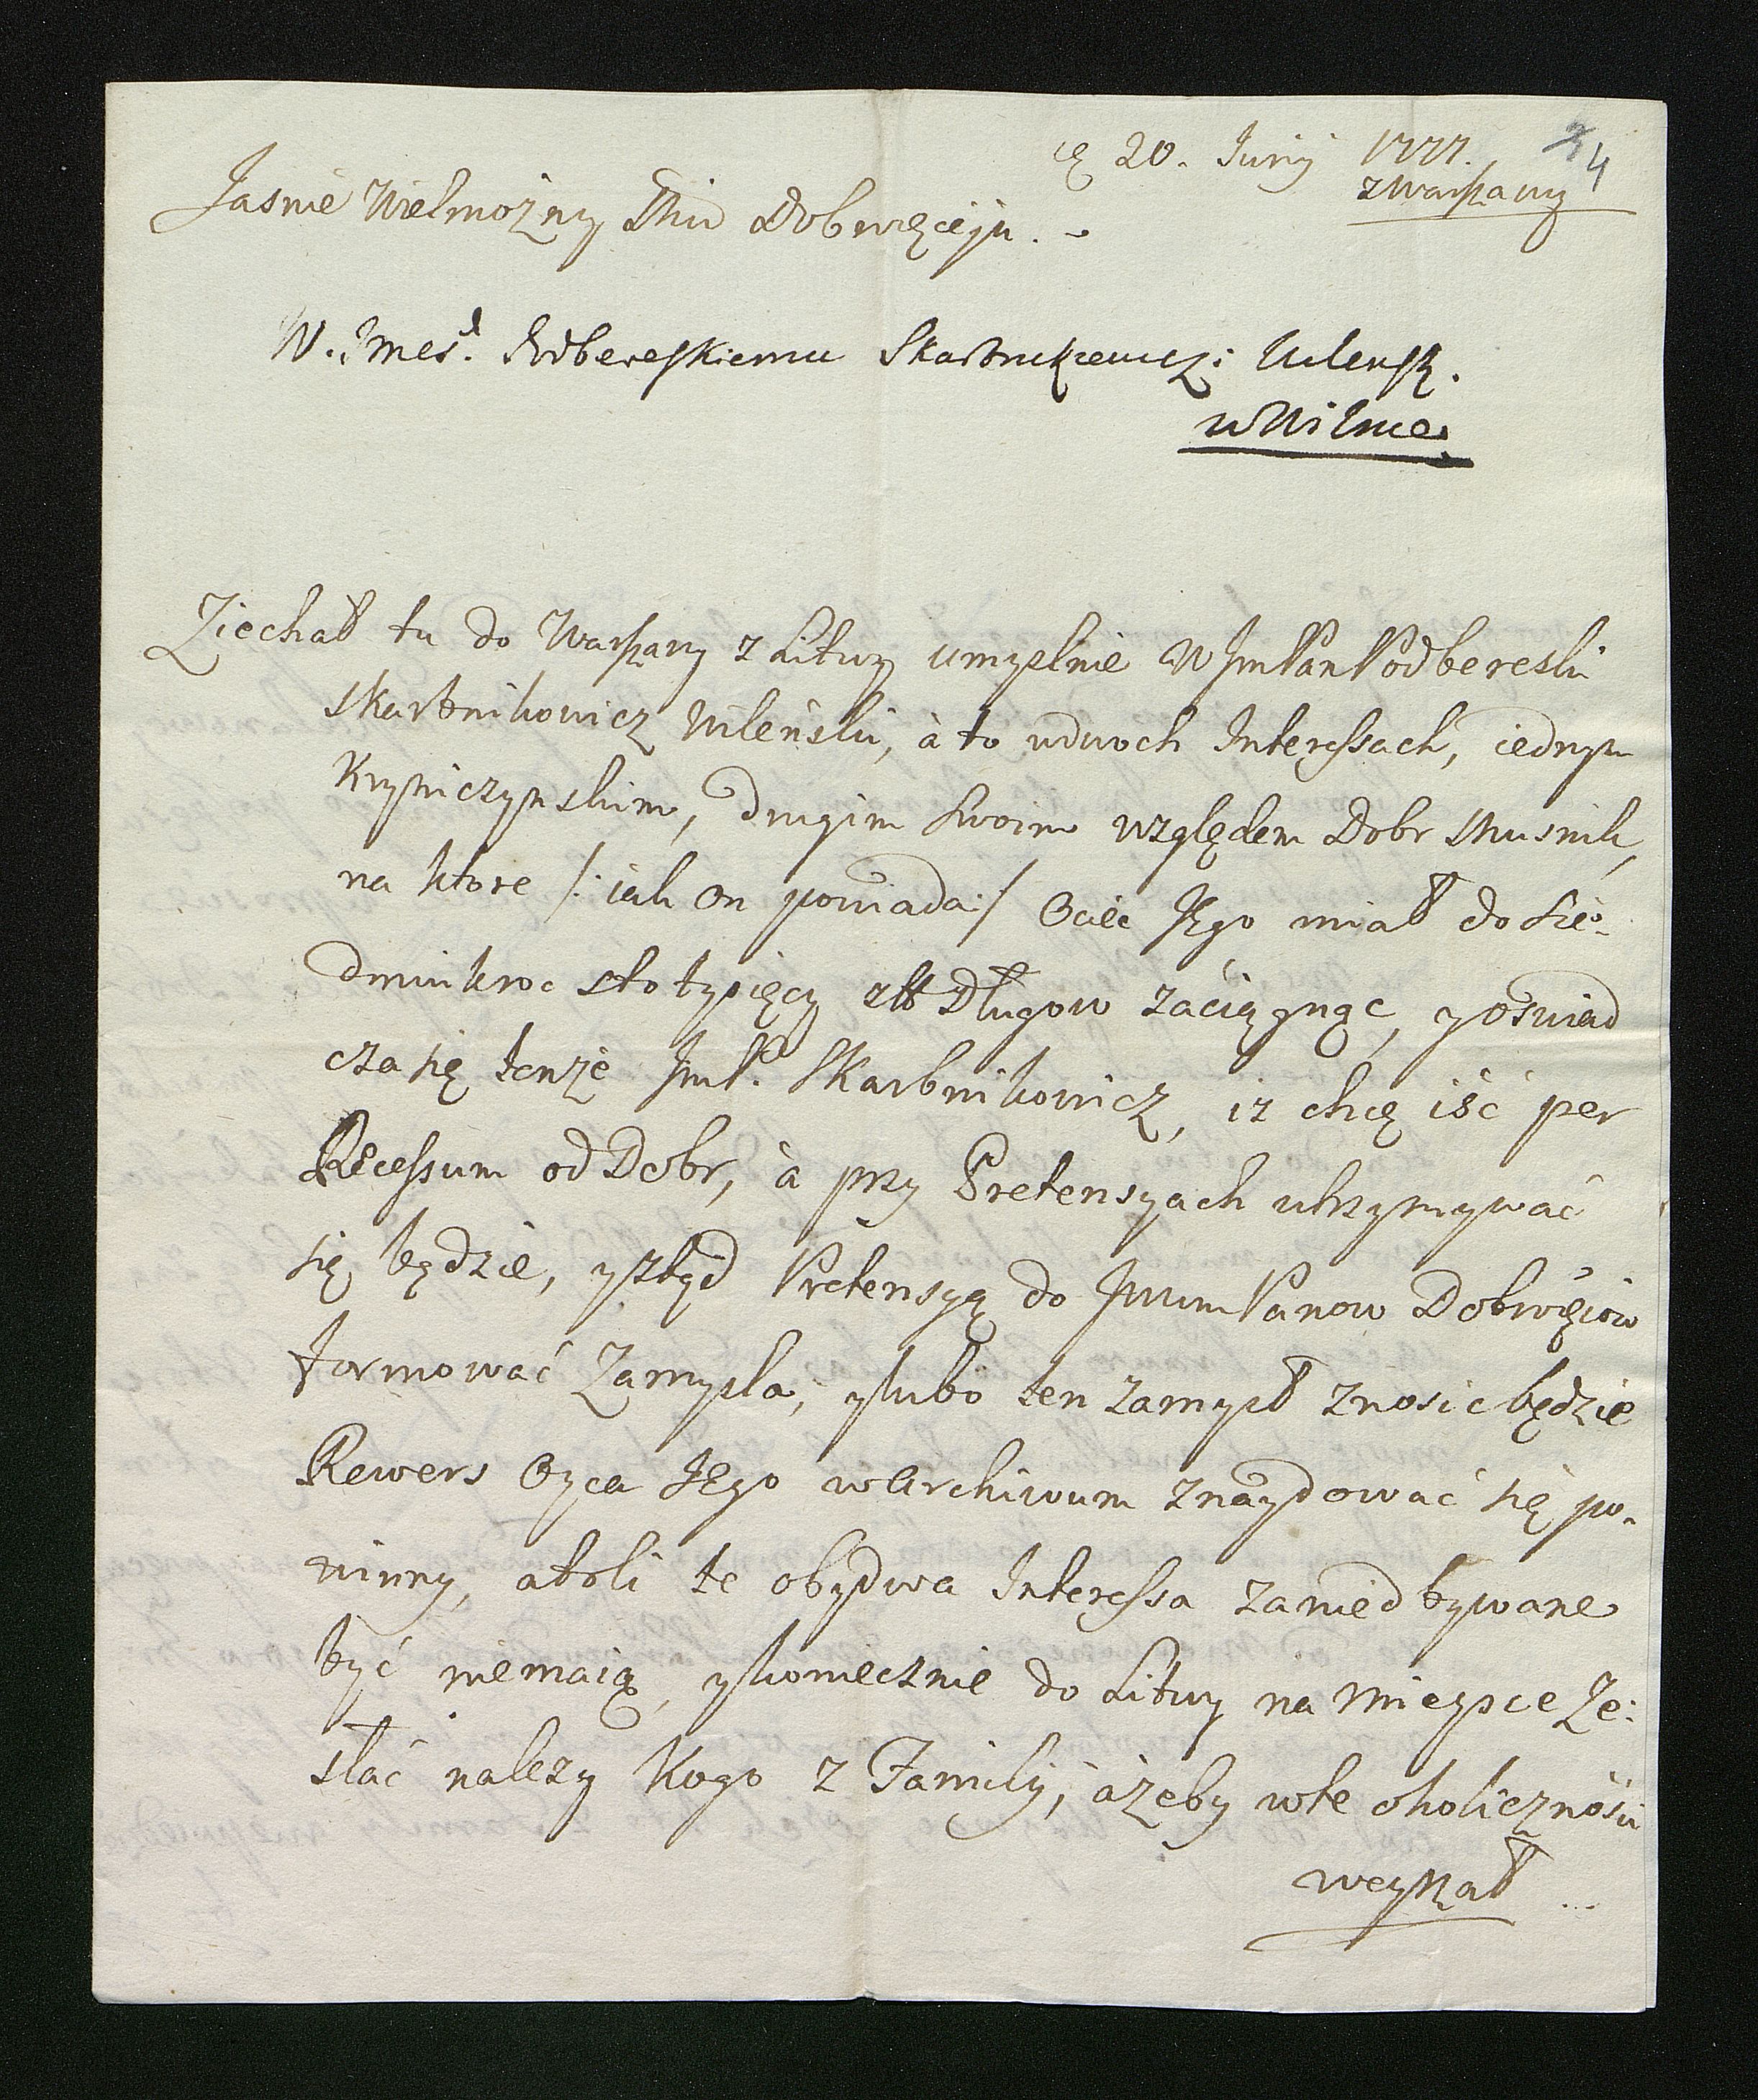 20. Junij 1777. 4
z Warszawy
Jasnie Wielmozny Mći Dobrodzieju.
W. Jmćś. Podbereskiemu Skarbnikiewicz: Wilensk.
w Wilnie
Ziechał tu do Warszawy z Litwy umyslnie W JmPan Podbereski
Skarbnikowicz Wileński, à to w dwoch Interessach, iednym
Kryniczynskim, drugim Swoim względem Dobr Musnik,
na ktore /: iak on powiada :/ Ociec Jego miał do Sie-
dmiukroc sto tysięcy złł Długow zaciągnąc, y oswiad
cza się tenże JmP. Skarbnikowicz, iz chcę iść per
Recessum od Dobr, à przy Pretensyach utrzymywać
się będzie, y ztąd Pretensyą do Jwwm Panow Dobrodzieiow
formować zamysla, y lubo ten zamysł znosic będzie
Rewers Oyca Jego w Archiwum znaydować się po-
winny, atoli te obydwa Interessa zaniedbywane
być niemaią, y koniecznie do Litwy na mieysce Ze:
słać nalezy Kogo z Familij, ażeby w te okoliczności
weyrzał ...